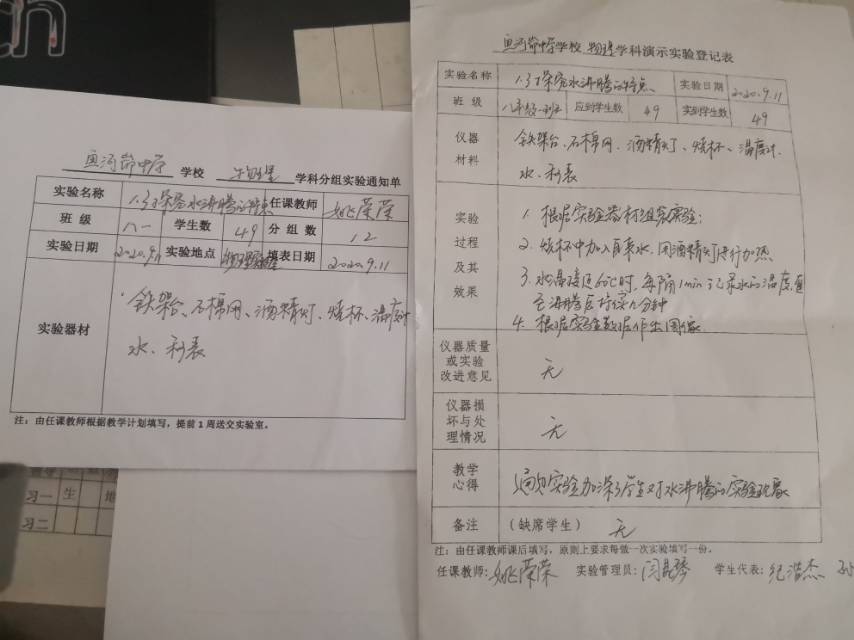 鱼河峁中学 学校 物理 学科分组实验通知单
实验名称 1.3 探究水沸腾的特点 任课教师 姚荣荣
班 级 八一 学生数 49 分 组 数 12
实验日期 2020.9.11 实验地点 填表日期 2020.9.11
实验器材
铁架台、石棉网、酒精灯、烧杯、温度计
水、秒表
注：由任课教师根据教学计划填写，提前 1 周送交实验室。
习一 生 地
习二
鱼河峁中学学校 物理学科演示实验登记表
实验名称 1.3 探究水沸腾的特点 实验日期 2020.9.11
班 级 八年级一班 应到学生数 49 实到学生数 49
仪器材料
铁架台、石棉网、酒精灯、烧杯、温度计、
水、秒表
实验过程及其效果
1. 根据实验器材组装实验；
2. 烧杯中加入自来水，用酒精灯进行加热
3. 水温接近60℃时，每隔1min记录水的温度，直
至沸腾后持续几分钟
4. 根据实验数据作出图像
仪器质量或实验改进意见 无
仪器损坏与处理情况 无
教学心得 通过实验加深了学生对水沸腾的实验现象
备注 （缺席学生） 无
注：由任课教师课后填写，原则上要求每做一次实验填写一份。
任课教师：姚荣荣 实验管理员： 学生代表：纪浩杰